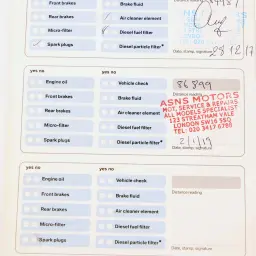 Front brakes Brake fluid
Rear brakes Air cleaner element
Micro-filter Diesel fuel filter
Spark plugs Diesel particle filter* Date, stamp, signature
28 12 17
yes no yes no
Engine oil Vehicle check 86899
Front brakes Brake fluid Distance reading
Rear brakes Air cleaner element
Micro-filter Diesel fuel filter
Spark plugs Diesel particle filter* Date, stamp, signature
ASNS MOTORS
MOT, SERVICE & REPAIRS
ALL MODELS SPECIALIST
123 STREATHAM VALE
LONDON SW16 5SQ
TEL: 020 3417 6786
2/1/19
yes no yes no
Engine oil Vehicle check
Front brakes Brake fluid Distance reading
Rear brakes Air cleaner element
Micro-filter Diesel fuel filter
Spark plugs Diesel particle filter* Date, stamp, signature